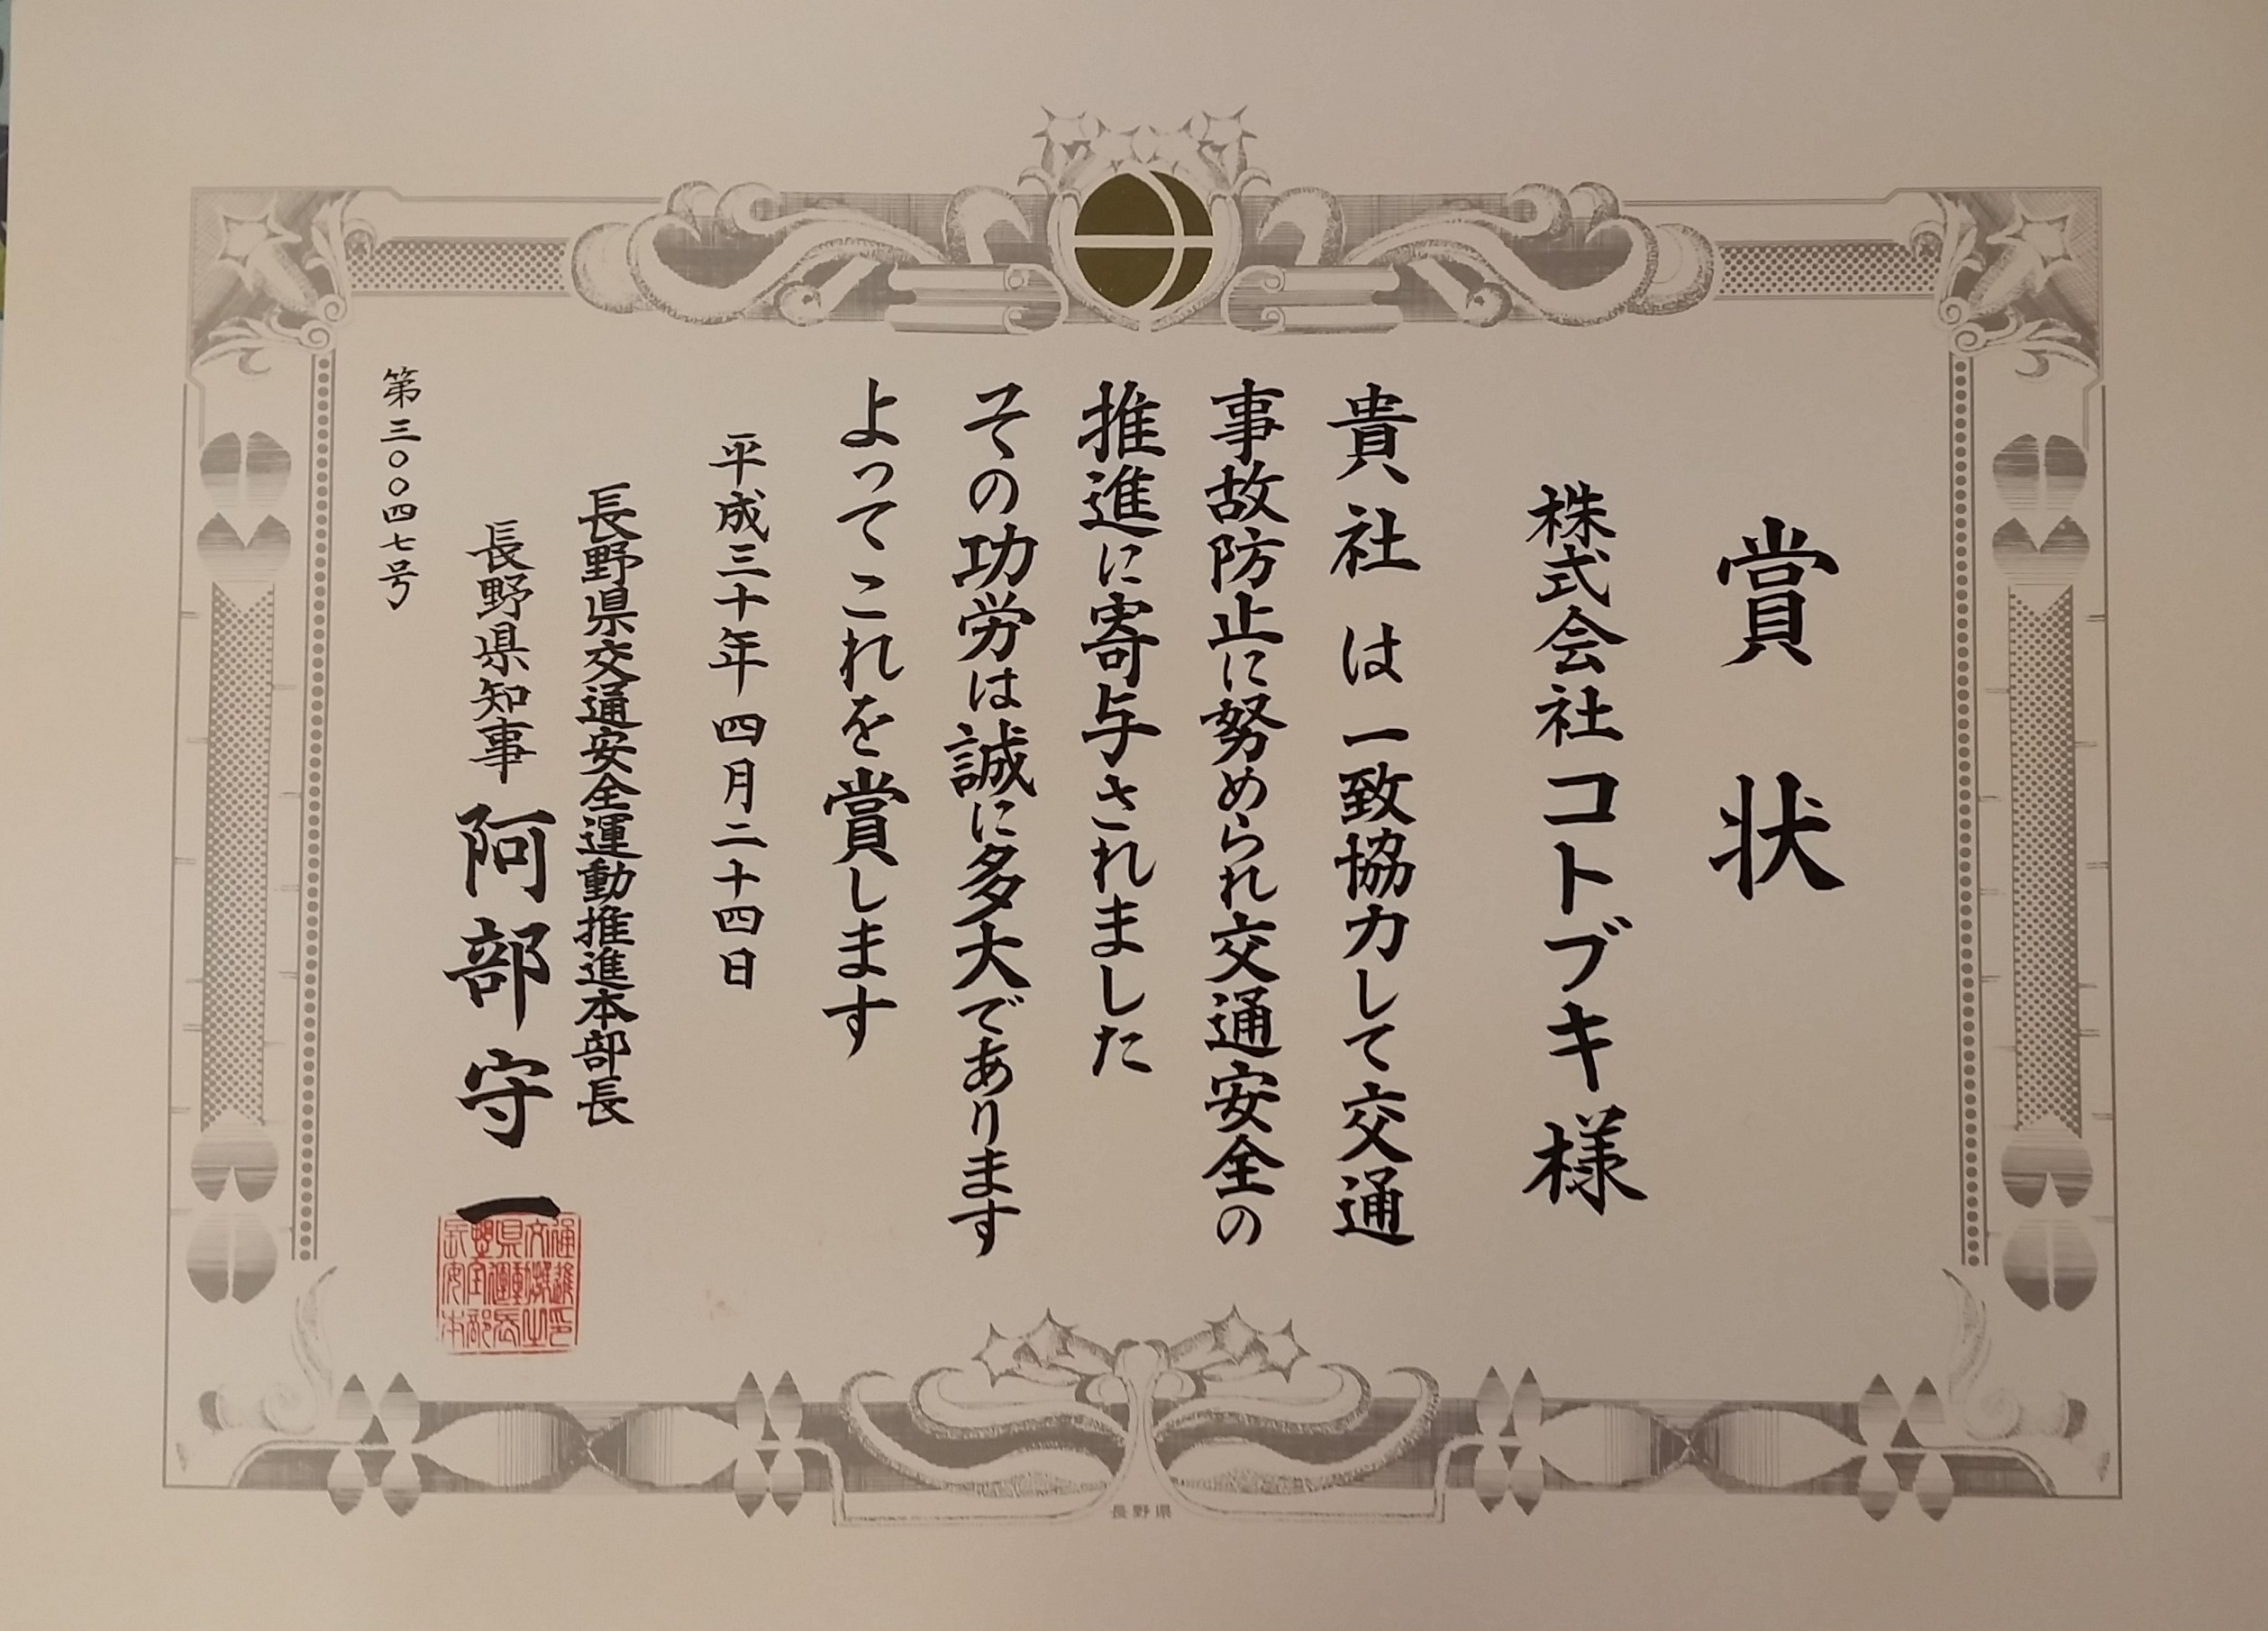 賞状
株式会社コトブキ様
貴社は一致協力して交通
事故防止に努められ交通安全の
推進に寄与されました
その功労は誠に多大であります
よってこれを賞します
平成三十年四月二十四日
長野県交通安全運動推進本部長
長野県知事 阿部守一
第三〇〇四七号
長野県